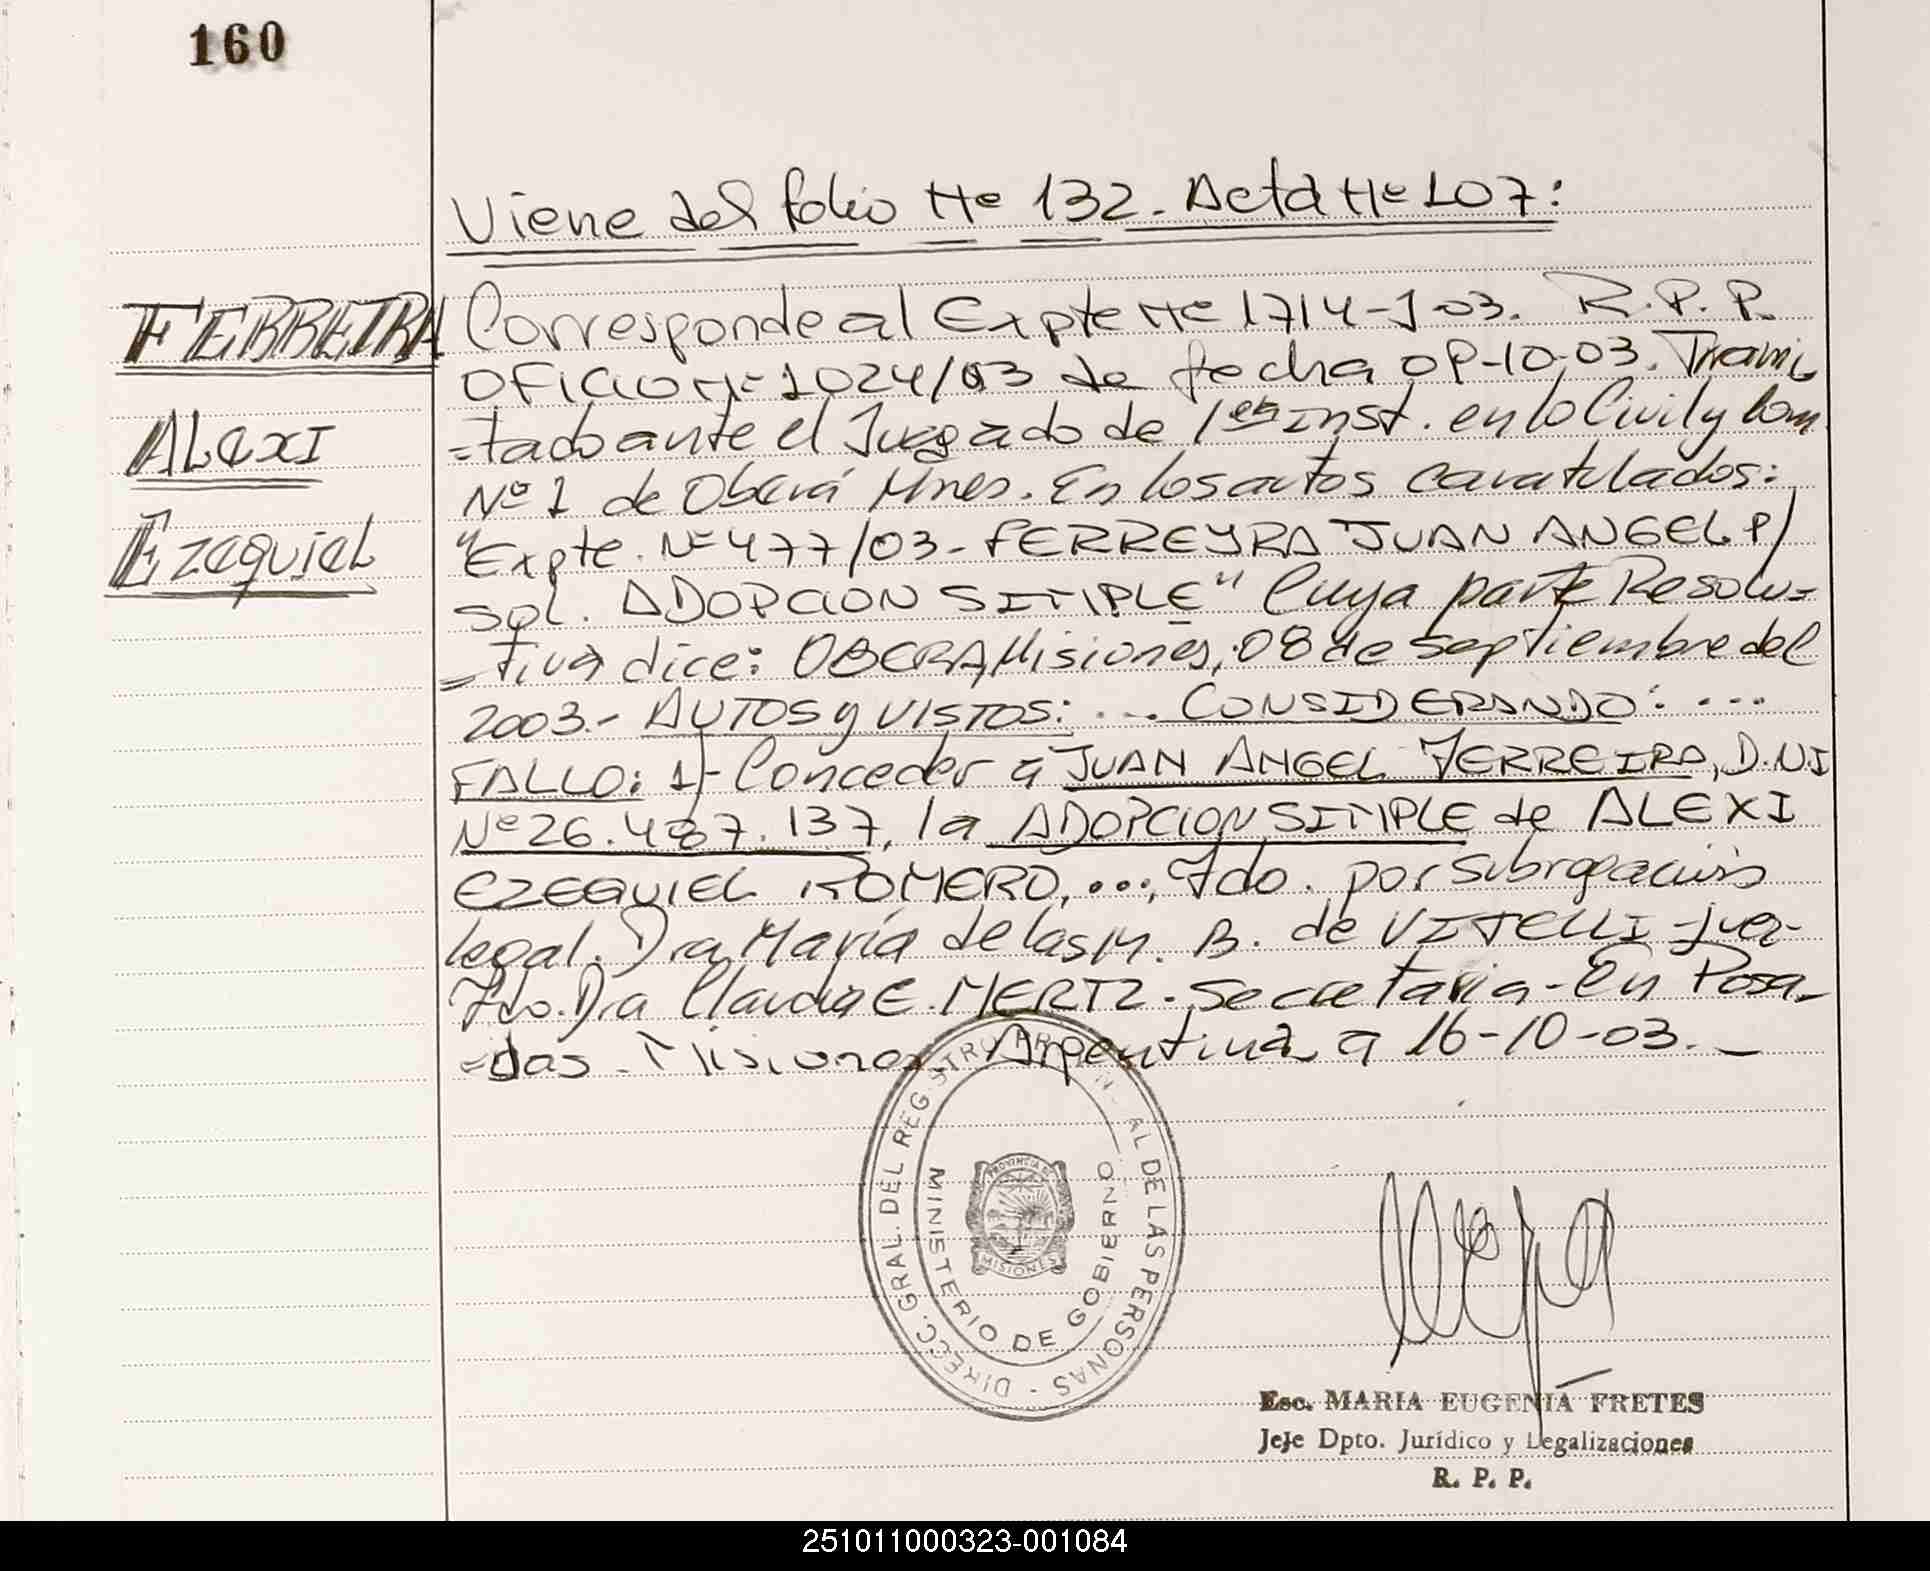 160
Viene del folio Nº 132. Acta Nº 107:
FERREIRA
ALEXI
EZEQUIEL
Corresponde al Expte Nº 1714-J-03. R.P.P.
OFICIO Nº 1024/03 de fecha 09-10-03. Trami
=tado ante el Juzgado de 1era Inst. en lo Civil y Com
Nº 1 de Oberá Mnes. En los autos caratulados:
"Expte. Nº 477/03- FERREYRA JUAN ANGEL P/
SOL. ADOPCION SIMPLE" Cuya parte Resolu=
=tiva dice: OBERA, Misiones, 08 de septiembre del
2003.- AUTOS y VISTOS: ... CONSIDERANDO: ...
FALLO: 1)- Conceder a JUAN ANGEL FERREIRA, D.N.I
Nº 26.487.137, la ADOPCION SIMPLE de ALEXI
EZEQUIEL ROMERO, ..., Fdo. por subrogación
legal. Dra María de las M. B. de VITELLI -Juez-
Fdo. Dra Claudia E. MERTZ - Secretaria - En Posa-
=das - Misiones Argentina a 16-10-03.-
DIRECC. GRAL. DEL REGISTRO PROVINCIAL DE LAS PERSONAS -
MINISTERIO DE GOBIERNO
PROVINCIA DE
MISIONES
Esc. MARIA EUGENIA FRETES
Jefe Dpto. Jurídico y Legalizaciones
R. P. P.
251011000323-001084